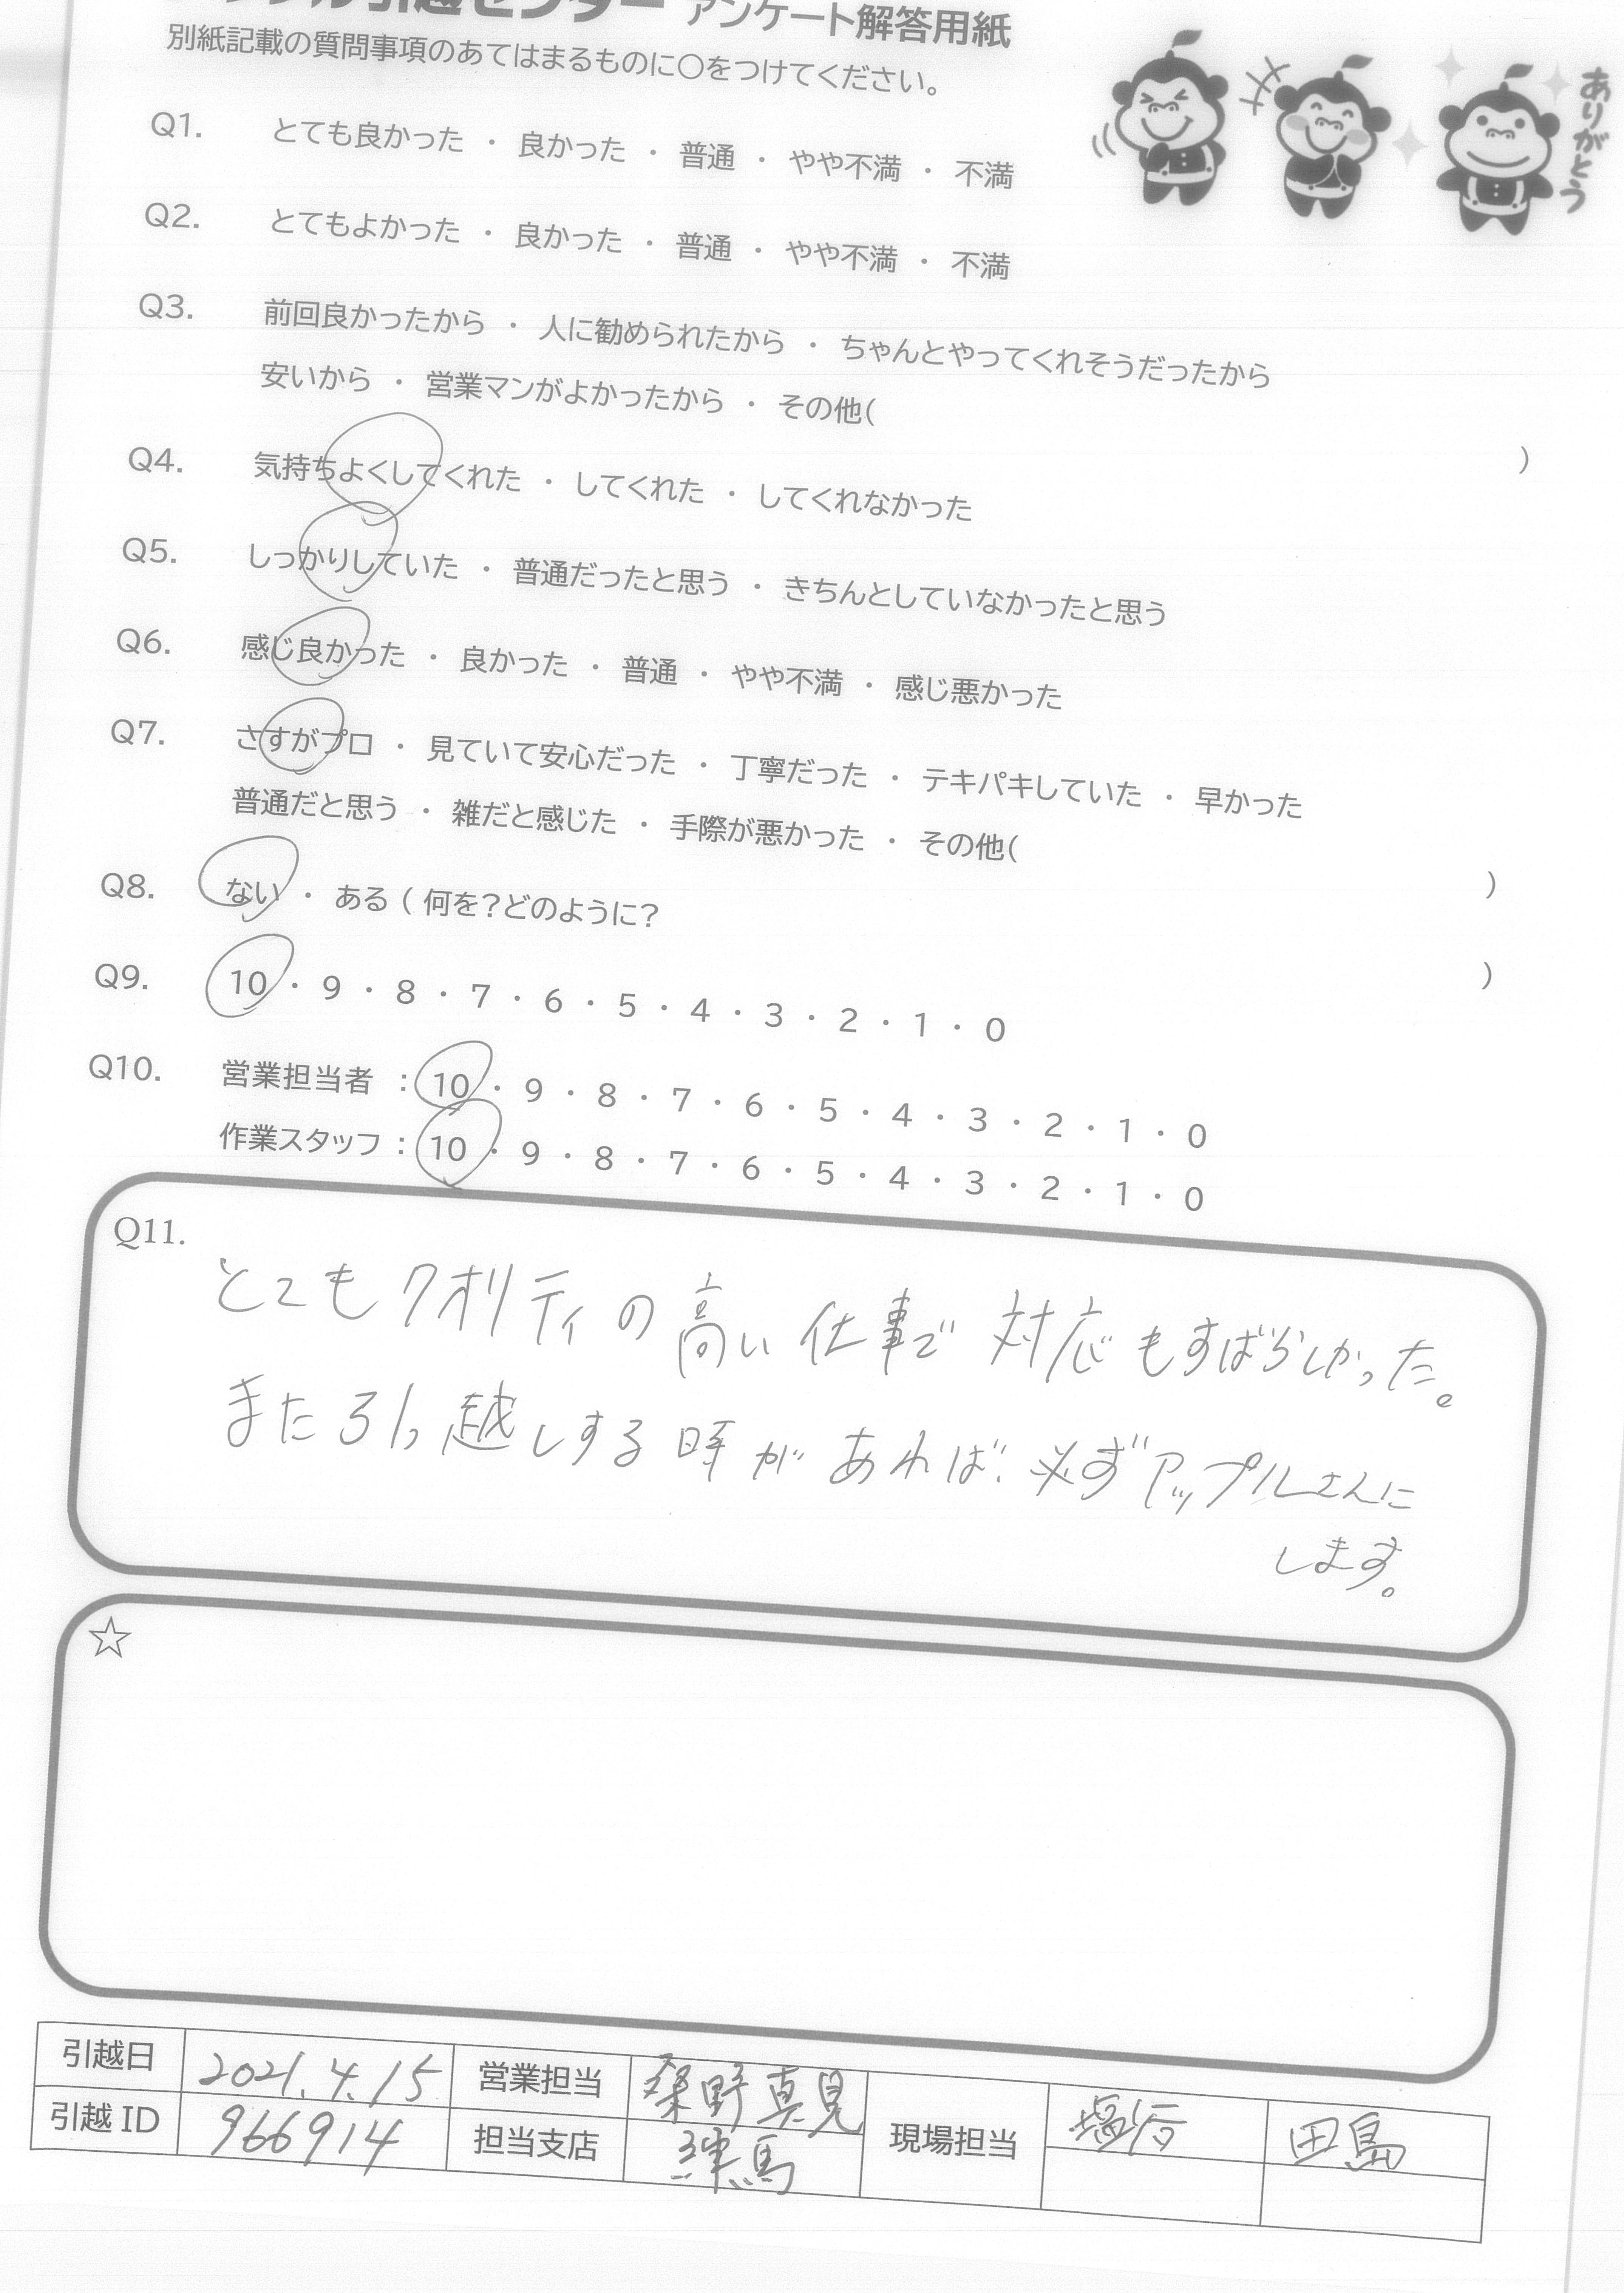 アップル引越センター アンケート解答用紙
別紙記載の質問事項のあてはまるものに〇をつけてください。
ありがとう
Q1. とても良かった ・ 良かった ・ 普通 ・ やや不満 ・ 不満
Q2. とてもよかった ・ 良かった ・ 普通 ・ やや不満 ・ 不満
Q3. 前回良かったから ・ 人に勧められたから ・ ちゃんとやってくれそうだったから
安いから ・ 営業マンがよかったから ・ その他( )
Q4. 気持ちよくしてくれた ・ してくれた ・ してくれなかった
Q5. しっかりしていた ・ 普通だったと思う ・ きちんとしていなかったと思う
Q6. 感じ良かった ・ 良かった ・ 普通 ・ やや不満 ・ 感じ悪かった
Q7. さすがプロ ・ 見ていて安心だった ・ 丁寧だった ・ テキパキしていた ・ 早かった
普通だと思う ・ 雑だと感じた ・ 手際が悪かった ・ その他( )
Q8. ない ・ ある ( 何を?どのように? )
Q9. 10 ・ 9 ・ 8 ・ 7 ・ 6 ・ 5 ・ 4 ・ 3 ・ 2 ・ 1 ・ 0
Q10. 営業担当者 : 10 ・ 9 ・ 8 ・ 7 ・ 6 ・ 5 ・ 4 ・ 3 ・ 2 ・ 1 ・ 0
作業スタッフ : 10 ・ 9 ・ 8 ・ 7 ・ 6 ・ 5 ・ 4 ・ 3 ・ 2 ・ 1 ・ 0
Q11.
とてもクオリティの高い仕事で対応もすばらしかった。
また引っ越しする時があれば、必ずアップルさんに
します。
☆
引越日 2021.4.15 営業担当 桑野真見 現場担当 塩谷 田島
引越 ID 966914 担当支店 練馬